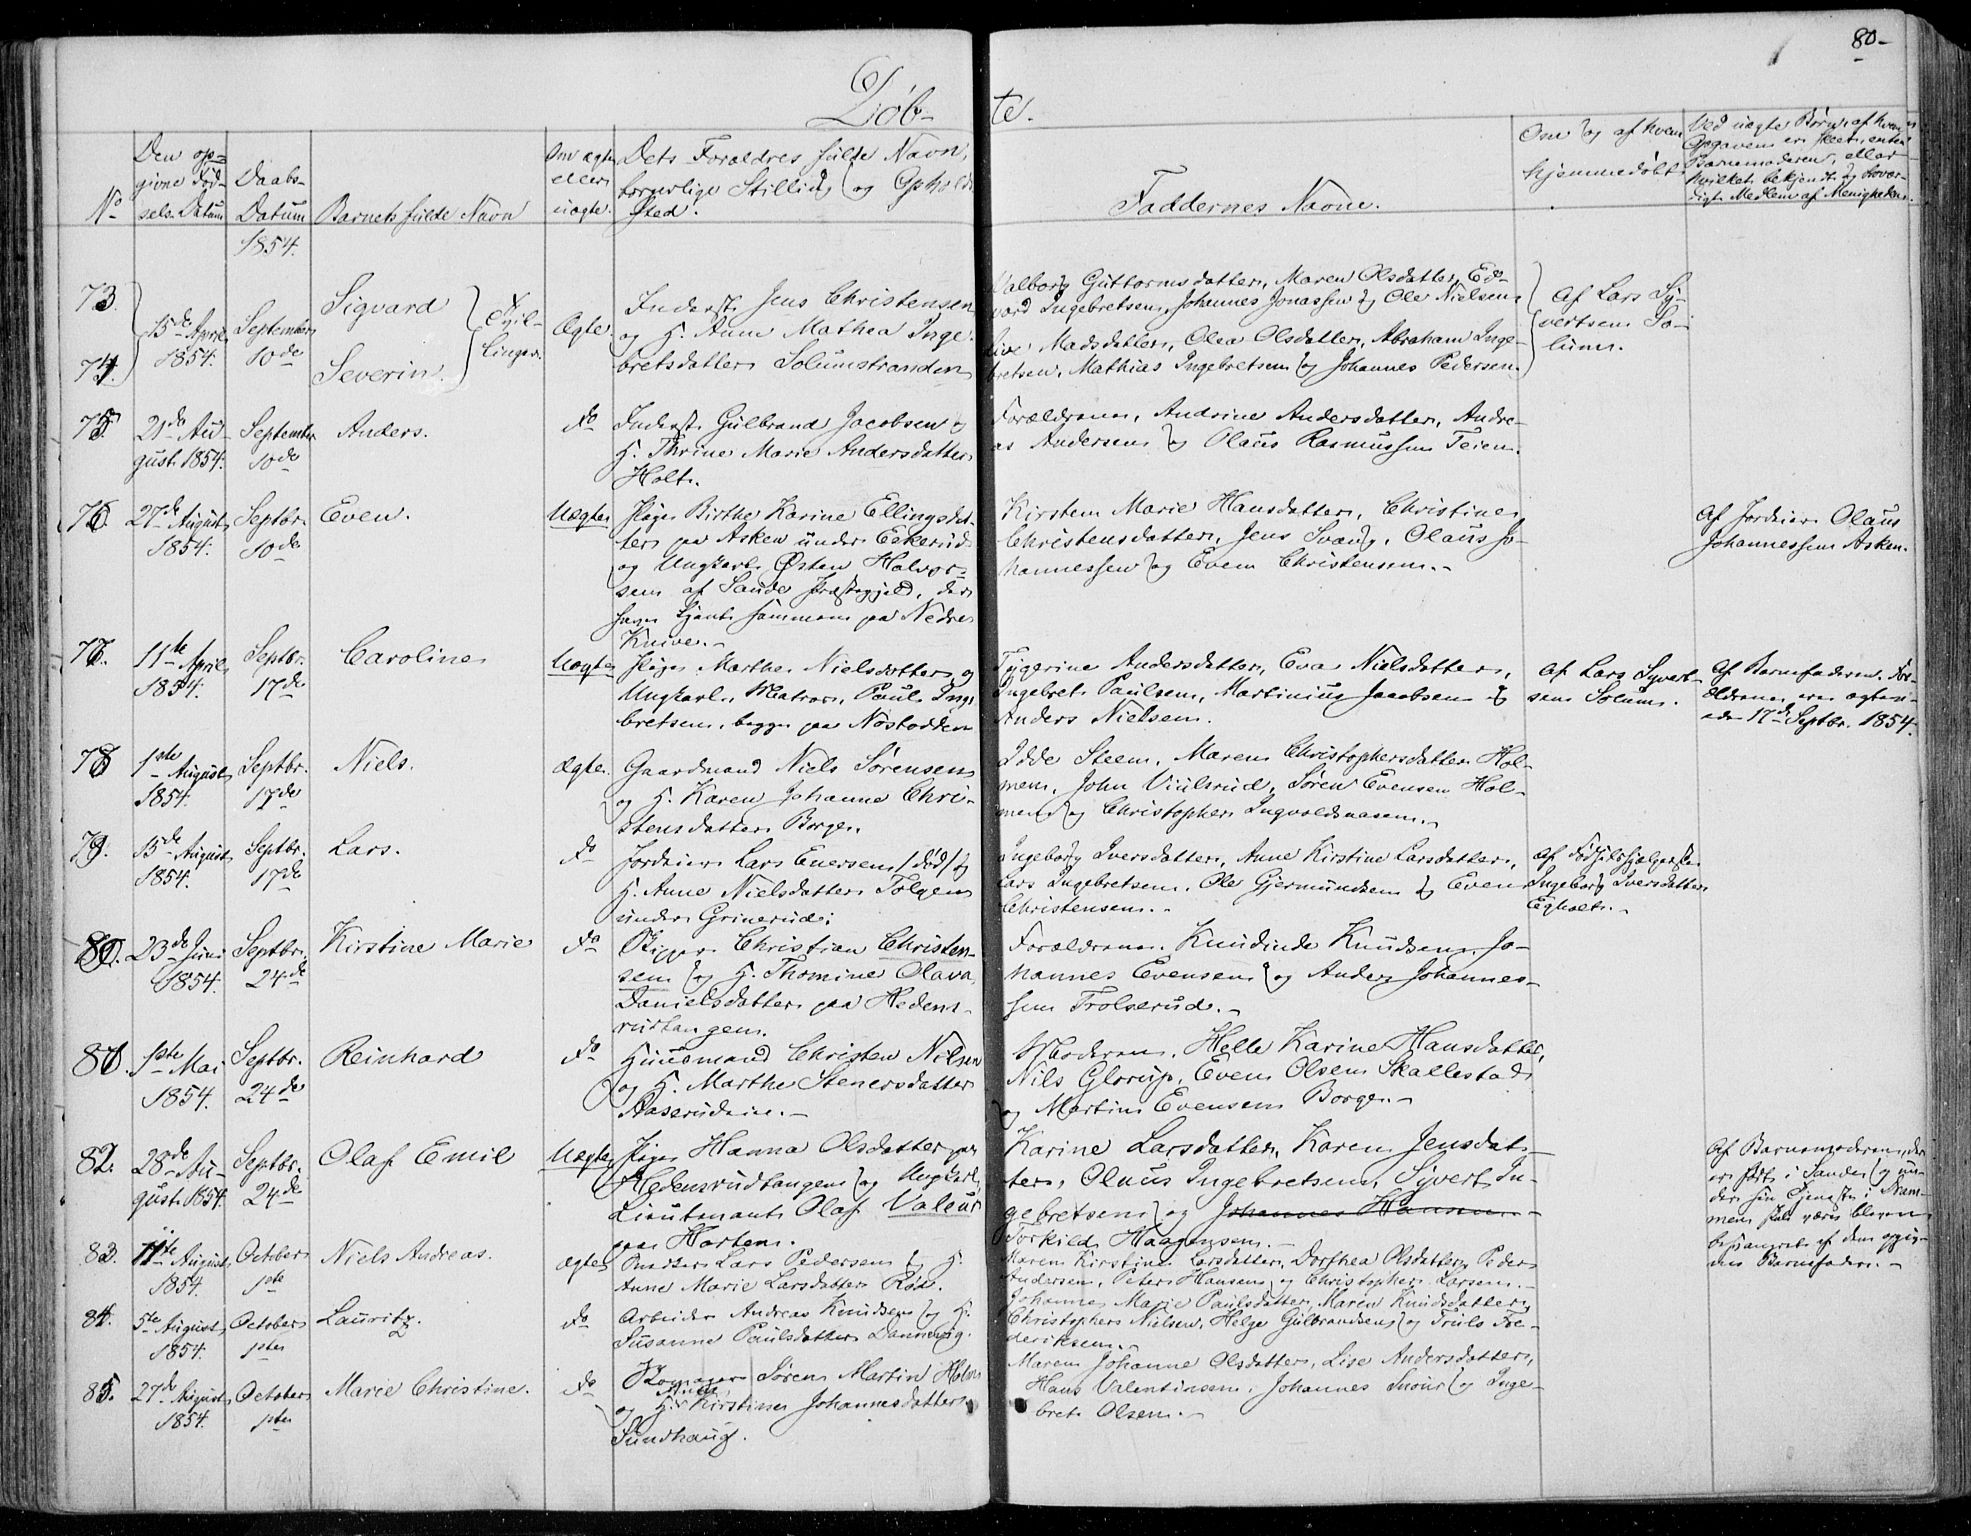 80-
Döb-
te.
No
Den op-
givne Fød-
sels. Datum
Daabs-
Datum
Barnets fulde Navn
Om ægte
eller
uægte.
Dets Forældres fulde Navn,
borgerlige Stilling og Opholds
sted.
Faddernes Navne.
Om og af hvem
hjemmedøbt
Ved uægte Børn, af hvem
Opgaven er skeet, enten
Barnemoderen, eller
hvilket bekjendt og trovær-
digt Medlem af Menigheden.
1854.
73.
74.
15de April
1854.
September
10de
Sigvard
Severin.
Tvil-
linger.
Ægte.
Inderst Jens Christensen
og H. Anne Mathea Inge-
bretsdatter Solumstranden
Valborg Guttormsdatter, Maren Olsdatter, Ed-
vard Ingebretsen, Johannes Jonassen og Ole Nielsen
Live Madsdatter, Olea Olsdatter, Abraham Inge-
bretsen, Mathias Ingebretsen og Johannes Pedersen.
Af Lars Sy-
vertsen So-
lum.
75.
21de Au-
gust 1854.
September
10de
Anders.
do
Inderst Gulbrand Jacobsen og
H. Thrine Marie Andersdatter
Holt.
Forældrene, Andrine Andersdatter, Andre-
as Andersen og Olaus Rasmussen Teien.
76.
27de August
1854.
Septbr.
10de
Even.
Uægte
Pige Birthe Karine Ellingsdat-
ter paa Asken under Eekerud
og Ungkarl Østen Halvor-
sen af Sande Præstegjeld, der
have tjent sammen paa Nedre
Knive.
Kirsten Marie Hansdatter, Christine
Christensdatter, Jens Svang, Olaus Jo-
hannessen og Even Christensen.
Af Jordeier Olaus
Johannessen Asken.
77.
11te April
1854.
Septbr.
17de
Caroline
Uægte
Pige Marthe Nielsdatter og
Ungkarl, Matros, Paul Inge
bretsen, begge paa Nøstodden
Tygerine Andersdatter, Eva Nielsdatter,
Ingebret Paulsen, Martinius Jacobsen og
Anders Nielsen.
Af Lars Syvert-
sen Solum.
Af Barnefaderen. For-
ældrene ere ægtevi-
ede 17de Septbr. 1854.
78
1ste August
1854.
Septbr.
17de
Niels.
Ægte.
Gaardmand Niels Sørensen
og H. Karen Johanne Chri-
stensdatter Borge.
Idde Steen, Maren Christophersdatter Hol-
men, John Viulsrud, Søren Evensen Hol-
men og Christopher Ingvoldsnasen.
79.
15de August
1854.
Septbr.
17de
Lars.
do
Jordeier Lars Enersen /død/ og
H. Anne Nielsdatter Tolgen
under Grinerud.
Ingeborg Iversdatter, Anne Kirstine Larsdatter,
Lars Ingebretsen, Ole Gjermundsen og Even
Christensen.
Af Fødselshjelperske
Ingeborg Iversdatter
Egholt.
80.
23de Juni
1854.
Septbr.
24de
Kirstine Marie
do
Skipper Christian Christen-
sen og H. Thomine Olava
Danielsdatter paa Hedens-
rudtangen.
Forældrene, Knudinde Knudsen, Jo-
hannes Evensen og Anders Johannes-
sen Trolserud.
81.
1ste Mai
1854.
Septbr.
24de
Reinhard
do
Huusmand Christen Nilsen
og H. Marthe Stenersdatter
Aaserudeie.
Moderen, Helle Karine Hansdatter,
Nils Glorup, Even Olsen Skallestad
og Martin Evensen Borge.
82.
28de Au-
gust 1854.
Septbr.
24de
Olaf Emil
Uægte
Pige Hanna Olsdatter paa
Hedensrudtangen og Ungkarl,
Lieutenant Olaf Valeur
paa Horten.
Karine Larsdatter, Karen Jensdat-
ter, Olaus Ingebretsen, Syvert In-
gebretsen og Johannes Hansen
Torkild Haagensen.
Af Barnemoderen, der
er født i Sande og un-
der sin Tjeneste i Dram-
men skal være bleven
besvangret af den opgiv-
ne Barnefader.
83.
11te August
1854.
October
1ste
Niels Andreas.
ægte
Lars Pedersen og H.
Anne Marie Larsdatter Rød.
Maren Kirstine Larsdatter, Dorthea Olsdatter, Peder
Andersen, Peter Hansen og Christopher Larsen.
84.
5te August
1854.
October
1ste
Lauritz.
do
Arbeider Andreas Knudsen og H.
Susanne Paulsdatter Dannevig.
Johannes Marie Paulsdatter, Maren Knudsdatter,
Christopher Nielsen, Helge Gulbrandsen og Truls Fre-
deriksen.
85.
27de August
1854.
October
1ste
Marie Christine.
do
Skomager Søren Martin Holm
og H. Anne Kirstine Johannesdatter
Sundhaug.
Maren Johanne Olsdatter, Lise Andersdatter,
Hans Valentinsen, Johannes Snour og Inge-
bret Olsen.